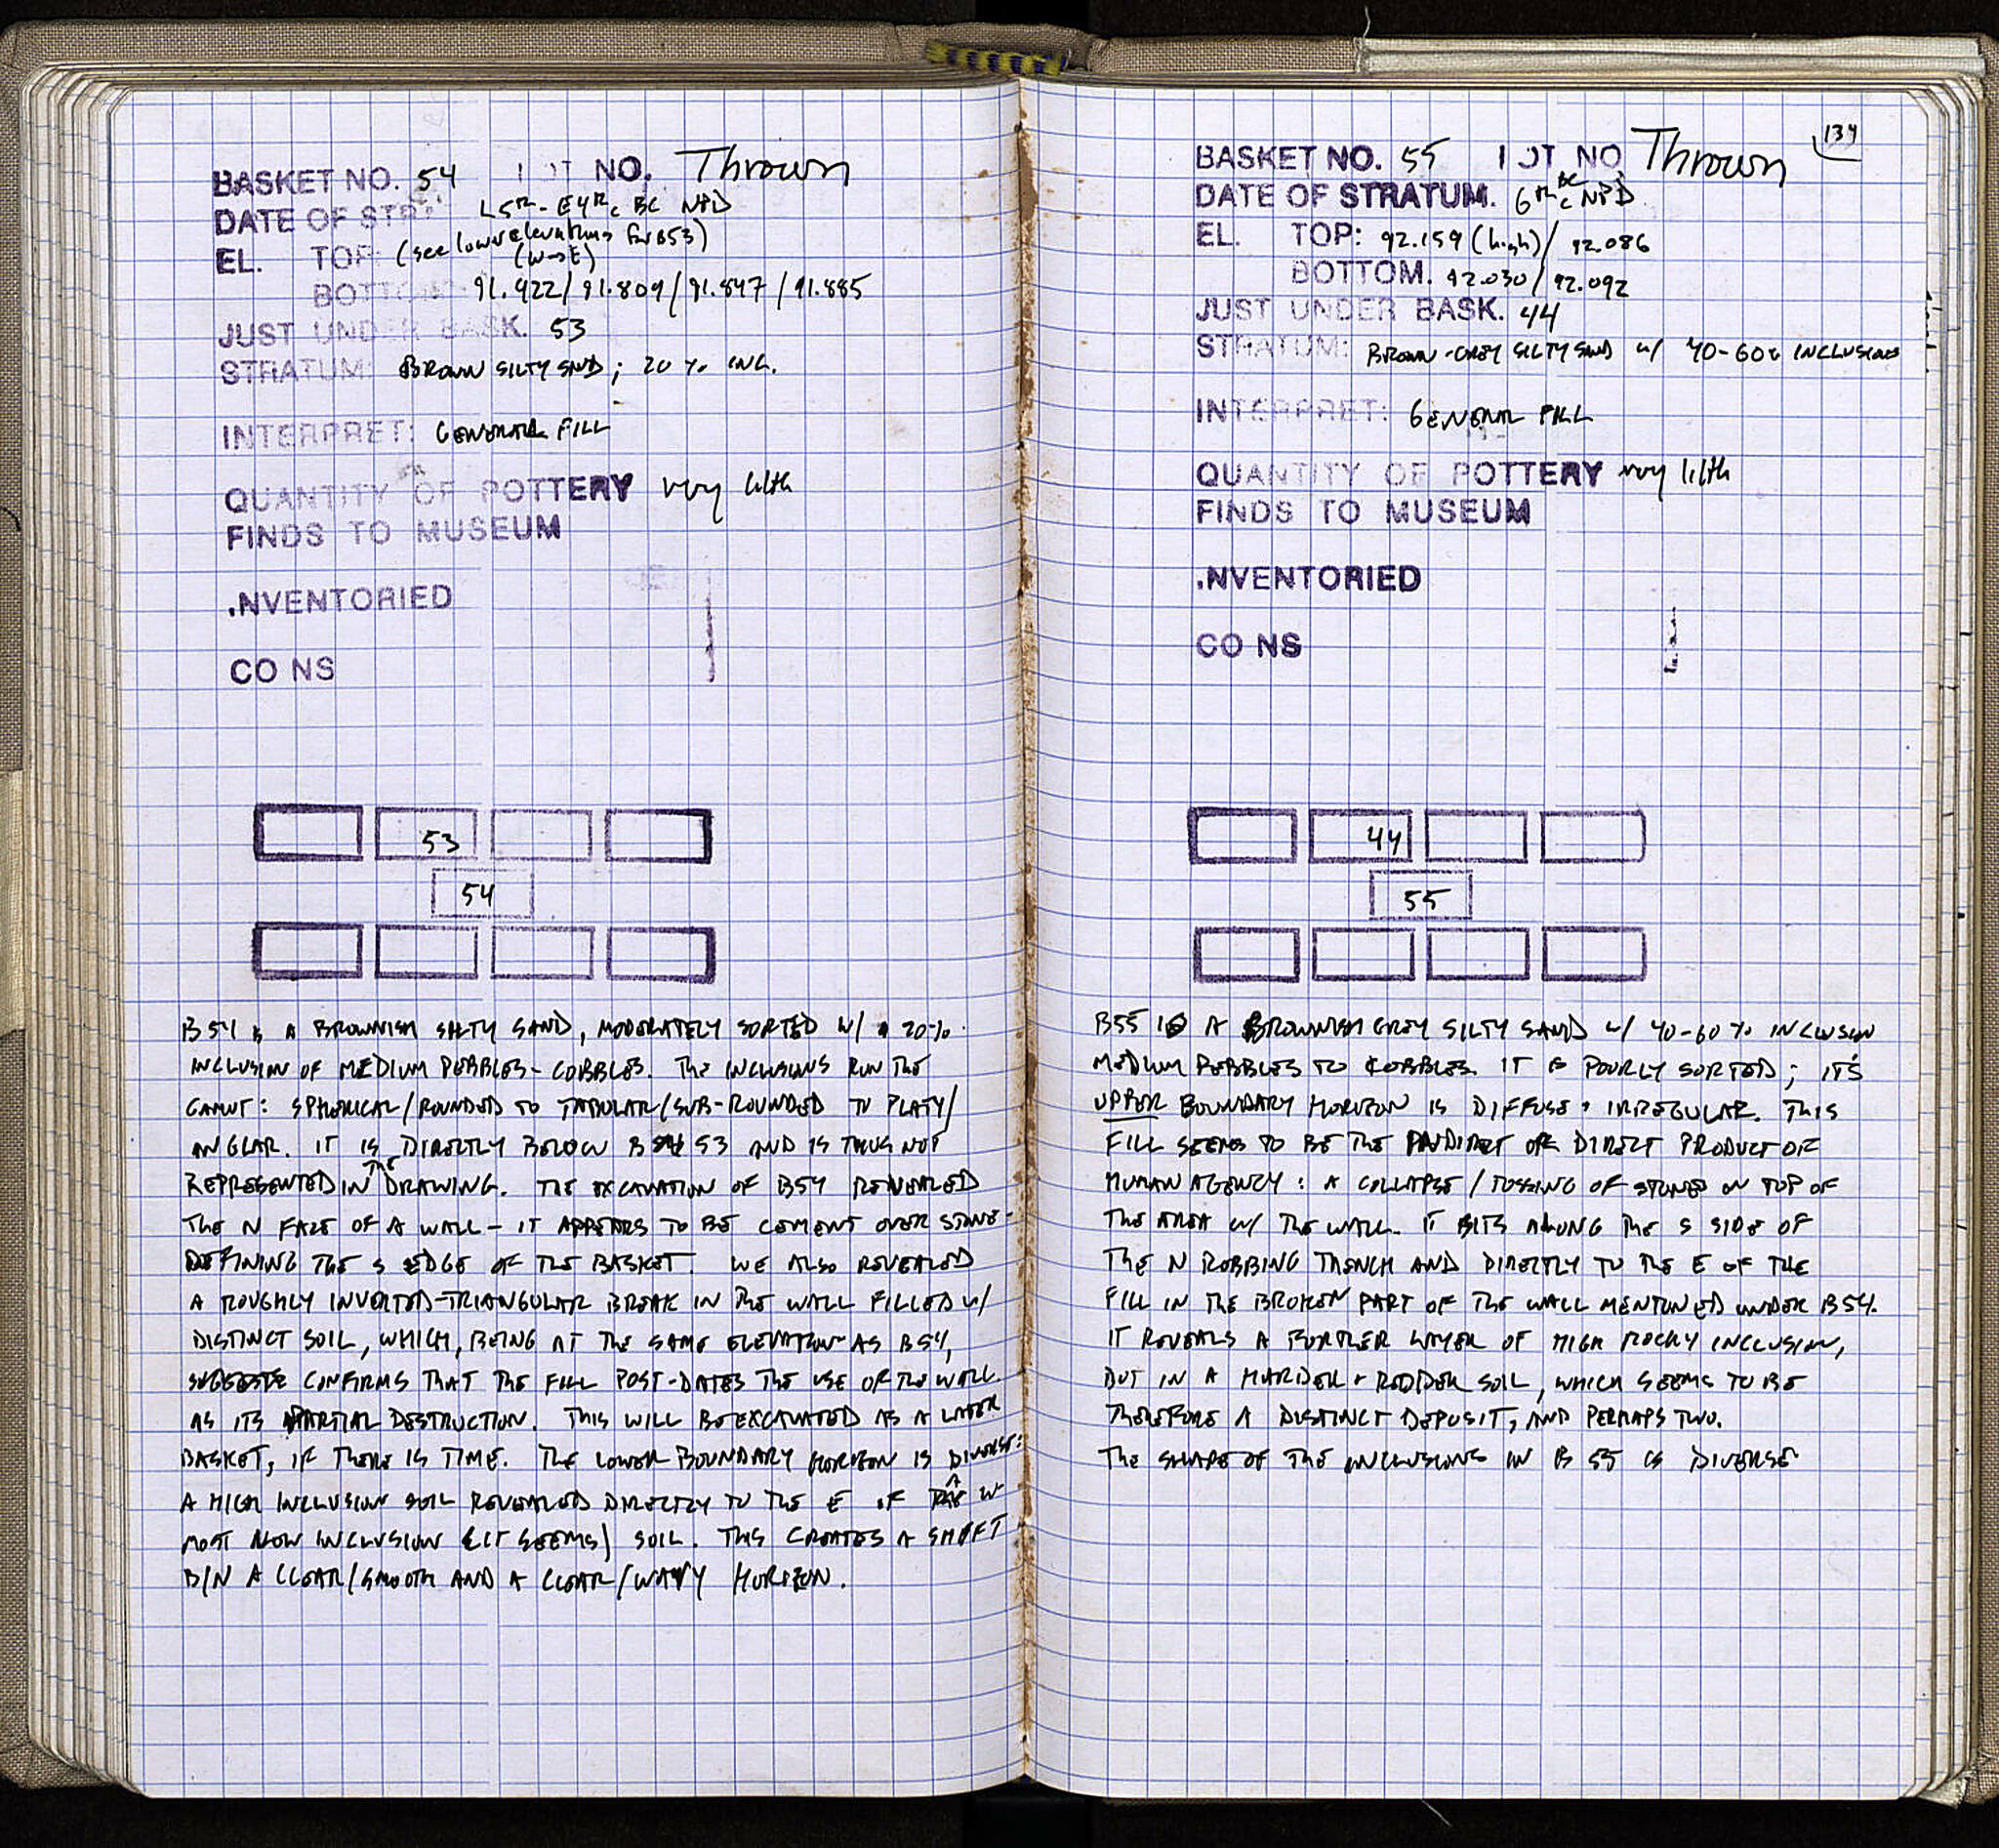 BASKET NO. 54 LOT NO. Thrown
DATE OF STR L5th - E4th c BC NPD
EL. TOP: (see lower elevations for B53)
(W→E)
BOTTOM: 91.922/91.809/91.847/91.885
JUST UNDER BASK. 53
STRATUM: BROWN SILTY SAND; 20% INC.
INTERPRET: GENERAL FILL
QUANTITY OF POTTERY very little
FINDS TO MUSEUM
.NVENTORIED
CO NS
53
54
B54 IS A BROWNISH SILTY SAND, MODERATELY SORTED W/ 20%
INCLUSION OF MEDIUM PEBBLES - COBBLES. THE INCLUSIONS RUN THE
GAMUT: SPHERICAL/ROUNDED TO TABULAR/SUB-ROUNDED TO PLATY/
ANGLAR. IT IS DIRECTLY BELOW B 53 AND IS THUS NOT
REPRESENTED IN THE DRAWING. THE EXCAVATION OF B54 REVEALED
THE N FACE OF A WALL - IT APPEARS TO BE CEMENT OVER STONE -
DEFINING THE S EDGE OF THE BASKET. WE ALSO REVEALED
A ROUGHLY INVERTED-TRIANGULAR BREAK IN THE WALL FILLED W/
DISTINCT SOIL, WHICH, BEING AT THE SAME ELEVATION AS B54,
CONFIRMS THAT THE FILL POST-DATES THE USE OF THE WALL
AS ITS PARTIAL DESTRUCTION. THIS WILL BE EXCAVATED AS A LATER
BASKET, IF THERE IS TIME. THE LOWER BOUNDARY HORIZON IS DIVERSE:
A HIGH INCLUSION SOIL REVEALED DIRECTLY TO THE E OF A W
MOST NOW INCLUSION (IT SEEMS) SOIL. THIS CREATES A SHIFT
B/N A CLEAR/SMOOTH AND A CLEAR/WAVY HORIZON.
134
BASKET NO. 55 LOT NO Thrown
DATE OF STRATUM. 6th c BC NPD
EL. TOP: 92.159 (high)/ 92.086
BOTTOM. 92.030/92.092
JUST UNDER BASK. 44
STRATUM: BROWN-GREY SILTY SAND w/ 40-60% INCLUSIONS
INTERPRET: GENERAL FILL
QUANTITY OF POTTERY very little
FINDS TO MUSEUM
.NVENTORIED
CO NS
44
55
B55 IS A BROWNISH GREY SILTY SAND w/ 40-60% INCLUSION
MEDIUM PEBBLES TO COBBLES. IT IS POURLY SORTED; IT'S
UPPER BOUNDARY HORIZON IS DIFFUSE + IRREGULAR. THIS
FILL SEEMS TO BE THE INDIRECT OR DIRECT PRODUCT OF
HUMAN AGENCY: A COLLAPSE/TOSSING OF STONES ON TOP OF
THE AREA W/ THE WALL. IT SITS ALONG THE S SIDE OF
THE N ROBBING TRENCH AND DIRECTLY TO THE E OF THE
FILL IN THE BROKEN PART OF THE WALL MENTIONED UNDER B54.
IT REVEALS A FURTHER LAYER OF HIGH ROCKY INCLUSION,
BUT IN A HARDER + REDDER SOIL, WHICH SEEMS TO BE
THEREFORE A DISTINCT DEPOSIT, AND PERHAPS TWO.
THE SHAPE OF THE INCLUSIONS IN B 55 IS DIVERSE